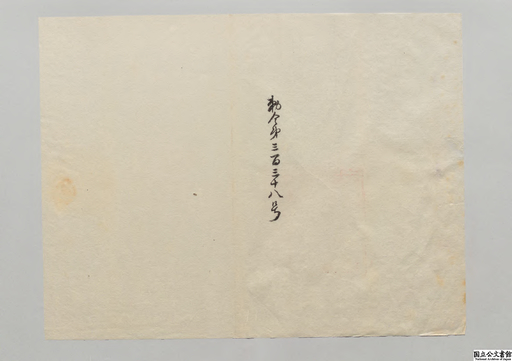 勅令第三百三十八号
国立公文書館
National Archives of Japan